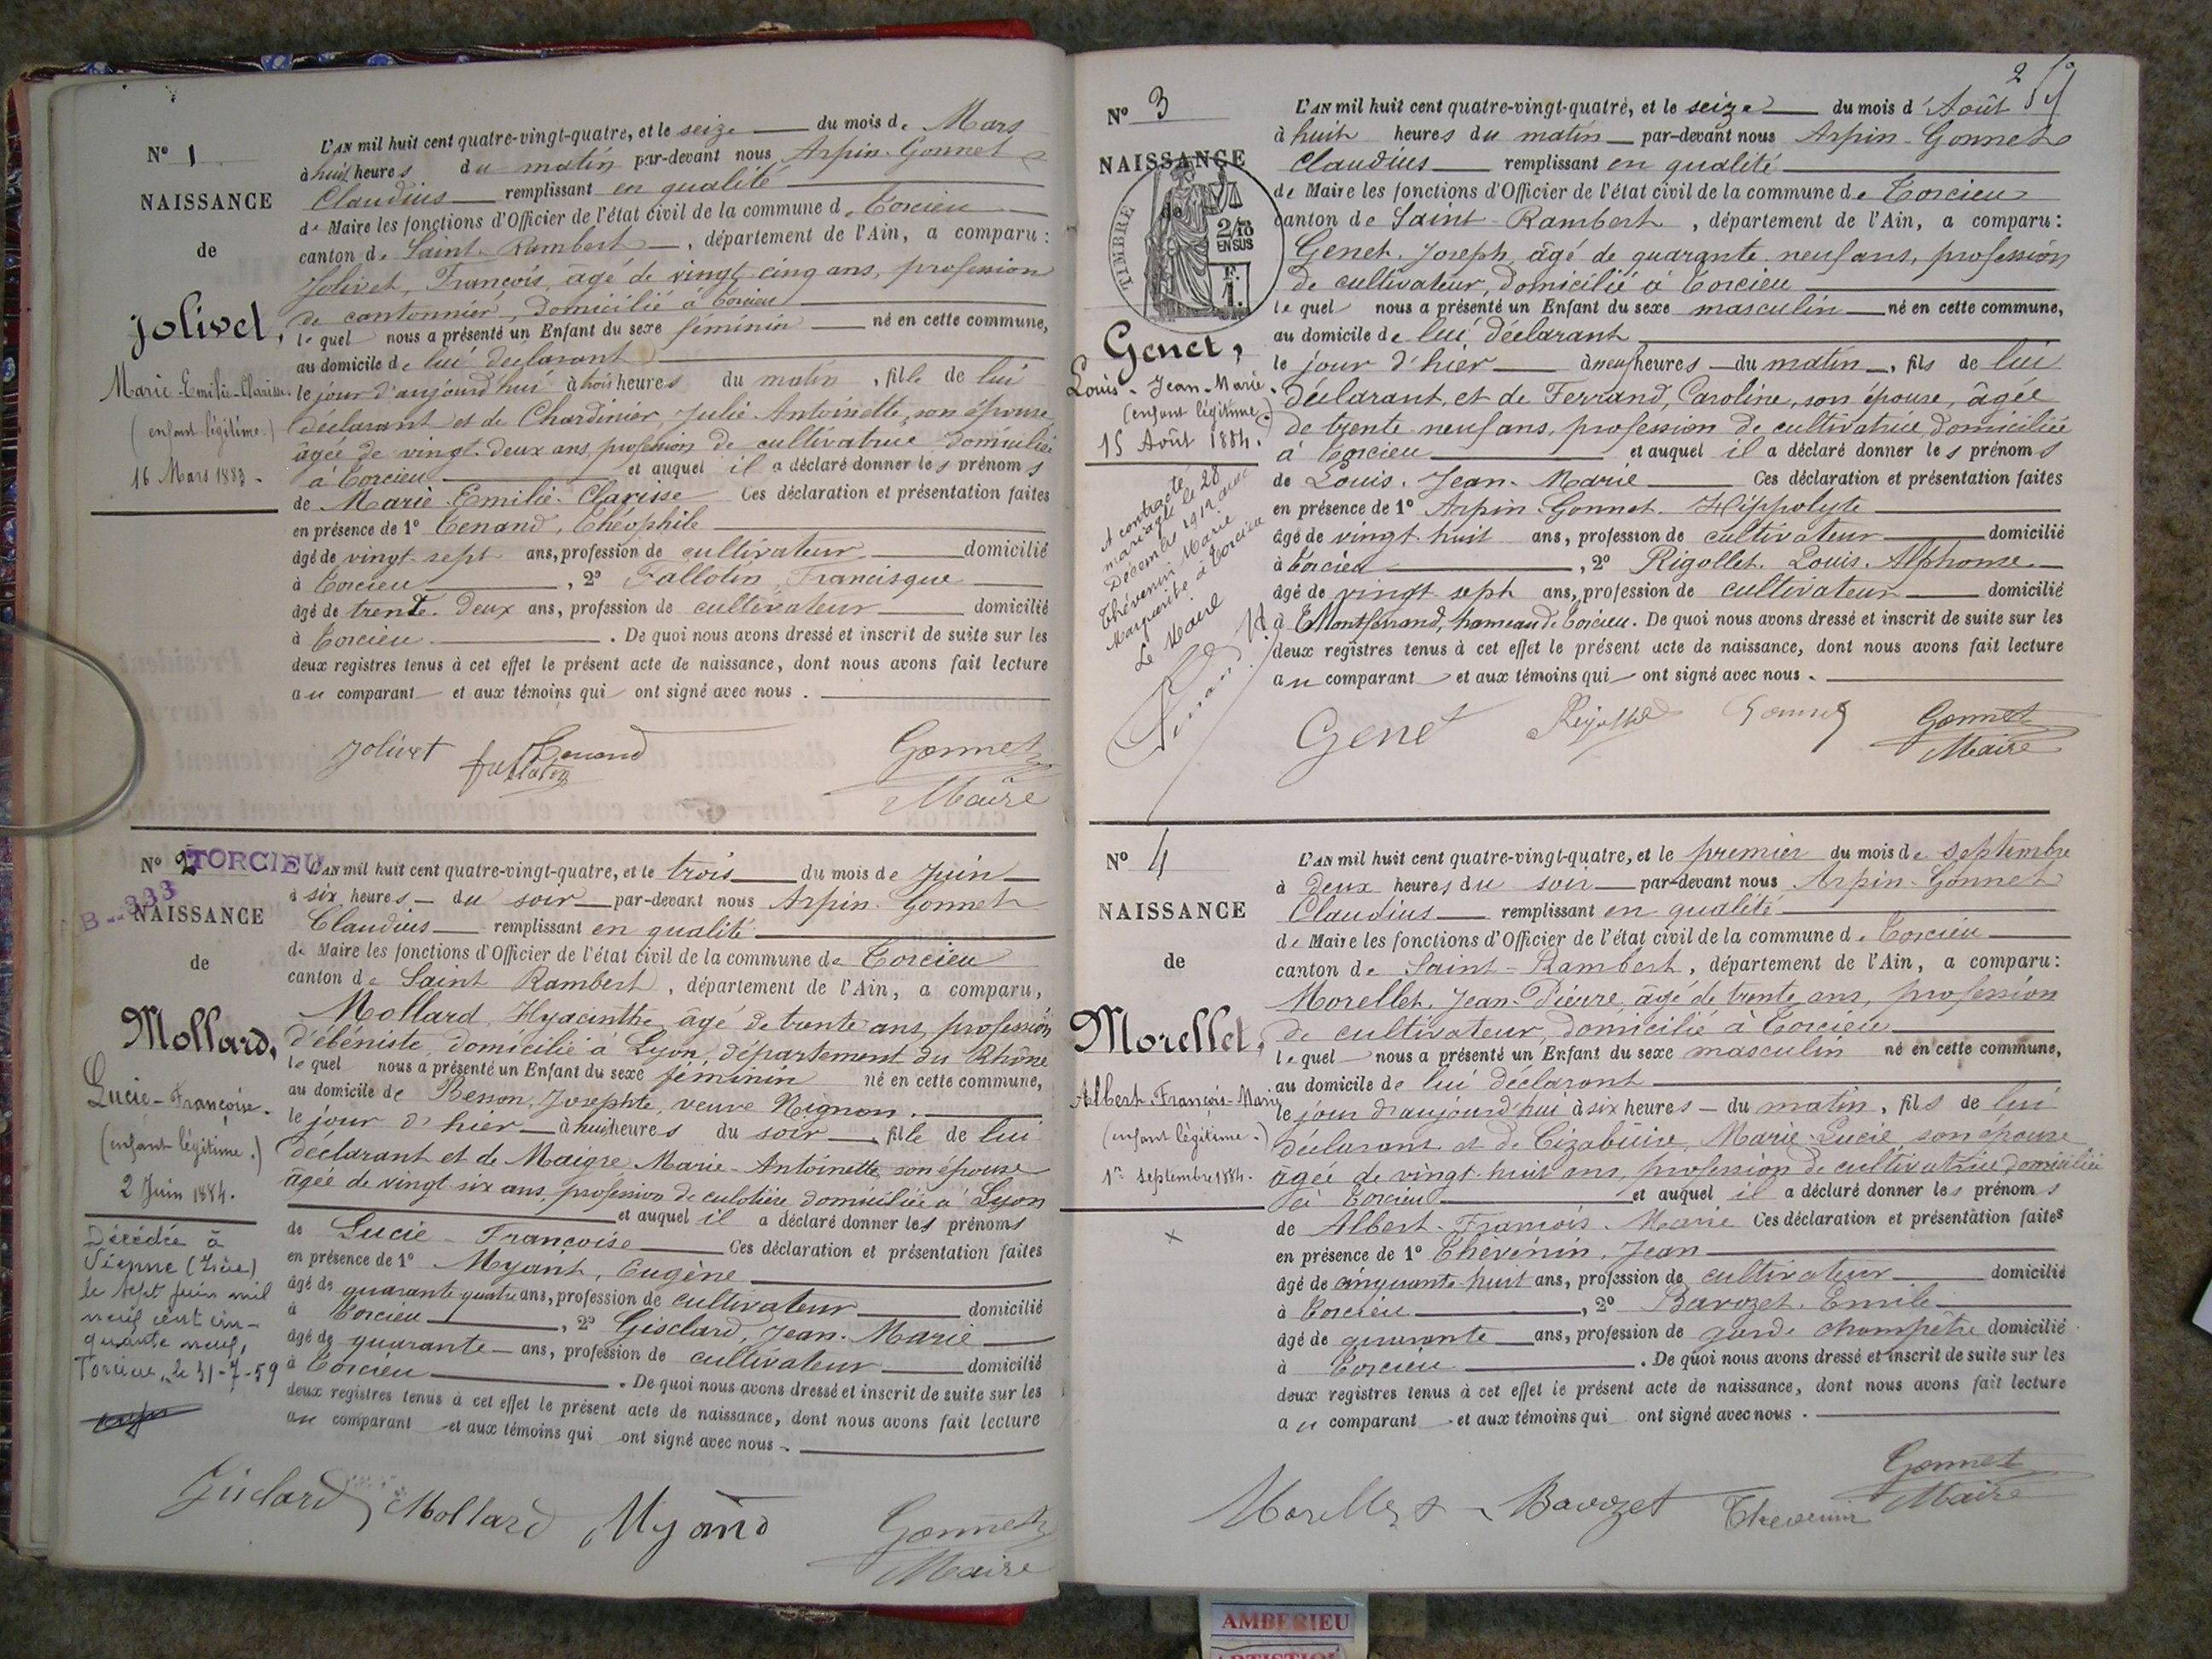 N° 1
NAISSANCE
de
Jolivet,
Marie-Emilie-Clarisse.
(enfant légitime.)
16 Mars 1883.
L'AN mil huit cent quatre-vingt-quatre, et le seize du mois de Mars
à huit heures du matin par-devant nous Arpin-Gonnet
Claudius remplissant en qualité
de Maire les fonctions d'Officier de l'état civil de la commune de Torcieu
canton de Saint-Rambert, département de l'Ain, a comparu :
Jolivet, François, âgé de vingt-cinq ans, profession
de cantonnier, domicilié à Torcieu
lequel nous a présenté un Enfant du sexe féminin né en cette commune,
au domicile de lui déclarant
le jour d'aujourd'hui à trois heures du matin, fille de lui
déclarant et de Chardinier, Julie Antoinette, son épouse
âgée de vingt-deux ans, profession de cultivatrice domiciliée
à Torcieu et auquel il a déclaré donner les prénoms
de Marie-Emilie-Clarisse Ces déclaration et présentation faites
en présence de 1° Tenand, Théophile
âgé de vingt-sept ans, profession de cultivateur domicilié
à Torcieu, 2° Fallotin, Francisque
âgé de trente-deux ans, profession de cultivateur domicilié
à Torcieu. De quoi nous avons dressé et inscrit de suite sur les
deux registres tenus à cet effet le présent acte de naissance, dont nous avons fait lecture
au comparant et aux témoins qui ont signé avec nous.
Jolivet Tenand Gonnet
Maire
N° 2 TORCIEU
B--333
NAISSANCE
de
Mollard,
Lucie-Françoise.
(enfant légitime.)
2 Juin 1884.
Décédée à
Vienne (Isère)
le sept juin mil
neuf cent cin-
quante neuf,
Torcieu, le 31-7-59
L'AN mil huit cent quatre-vingt-quatre, et le trois du mois de Juin
à six heures du soir par-devant nous Arpin-Gonnet
Claudius remplissant en qualité
de Maire les fonctions d'Officier de l'état civil de la commune de Torcieu
canton de Saint Rambert, département de l'Ain, a comparu,
Mollard, Hyacinthe âgé de trente ans, profession
d'ébéniste, domicilié à Lyon, département du Rhône
lequel nous a présenté un Enfant du sexe féminin né en cette commune,
au domicile de Besson, Josephte, veuve Nignon.
le jour d'hier à huit heures du soir, fille de lui
déclarant et de Maigre Marie-Antoinette son épouse
âgée de vingt-six ans, profession de culotière domiciliée à Lyon
et auquel il a déclaré donner les prénoms
de Lucie-Françoise Ces déclaration et présentation faites
en présence de 1° Myant, Eugène
âgé de quarante quatre ans, profession de cultivateur domicilié
à Torcieu, 2° Gisclard, Jean-Marie
âgé de quarante ans, profession de cultivateur domicilié
à Torcieu. De quoi nous avons dressé et inscrit de suite sur les
deux registres tenus à cet effet le présent acte de naissance, dont nous avons fait lecture
au comparant et aux témoins qui ont signé avec nous.
Gisclard Mollard Myand Gonnet
Maire
2
N° 3
NAISSANCE
de
TIMBRE
2/10
EN SUS
F.
1.
Genet,
Louis-Jean-Marie.
(enfant légitime)
15 Août 1884.
A contracté
mariage le 28
Décembre 1912 avec
Thévenin Marie
Marguerite à Torcieu
Le Maire
L'AN mil huit cent quatre-vingt-quatre, et le seize du mois d'Août
à huit heures du matin par-devant nous Arpin-Gonnet
Claudius remplissant en qualité
de Maire les fonctions d'Officier de l'état civil de la commune de Torcieu
canton de Saint-Rambert, département de l'Ain, a comparu :
Genet, Joseph, âgé de quarante-neuf ans, profession
de cultivateur, domicilié à Torcieu
lequel nous a présenté un Enfant du sexe masculin né en cette commune,
au domicile de lui déclarant
le jour d'hier à neuf heures du matin, fils de lui
déclarant, et de Ferrand, Caroline, son épouse, âgée
de trente-neuf ans, profession de cultivatrice, domiciliée
à Torcieu et auquel il a déclaré donner les prénoms
de Louis-Jean-Marie Ces déclaration et présentation faites
en présence de 1° Arpin-Gonnet-Hippolyte
âgé de vingt-huit ans, profession de cultivateur domicilié
à Torcieu, 2° Rigollet, Louis-Alphonse
âgé de vingt-sept ans, profession de cultivateur domicilié
à Montferrand, hameau de Torcieu. De quoi nous avons dressé et inscrit de suite sur les
deux registres tenus à cet effet le présent acte de naissance, dont nous avons fait lecture
au comparant et aux témoins qui ont signé avec nous.
Genet Rigollet Gonnet Gonnet
Maire
N° 4
NAISSANCE
de
Morellet,
Albert-François-Marie
(enfant légitime.)
1er Septembre 1884.
L'AN mil huit cent quatre-vingt-quatre, et le premier du mois de Septembre
à deux heures du soir par-devant nous Arpin-Gonnet
Claudius remplissant en qualité
de Maire les fonctions d'Officier de l'état civil de la commune de Torcieu
canton de Saint-Rambert, département de l'Ain, a comparu :
Morellet, Jean-Pierre, âgé de trente ans, profession
de cultivateur, domicilié à Torcieu
lequel nous a présenté un Enfant du sexe masculin né en cette commune,
au domicile de lui déclarant
le jour d'aujourd'hui à six heures du matin, fils de lui
déclarant et de Cizabuire, Marie-Lucie, son épouse
âgée de vingt-huit ans, profession de cultivatrice domiciliée
à Torcieu et auquel il a déclaré donner les prénoms
de Albert-François-Marie Ces déclaration et présentation faites
en présence de 1° Thévenin, Jean
âgé de cinquante-huit ans, profession de cultivateur domicilié
à Torcieu, 2° Bavozet, Emile
âgé de quarante ans, profession de garde champêtre domicilié
à Torcieu. De quoi nous avons dressé et inscrit de suite sur les
deux registres tenus à cet effet le présent acte de naissance, dont nous avons fait lecture
au comparant et aux témoins qui ont signé avec nous.
Morellet Bavozet Thevenin Gonnet
Maire
AMBERIEU